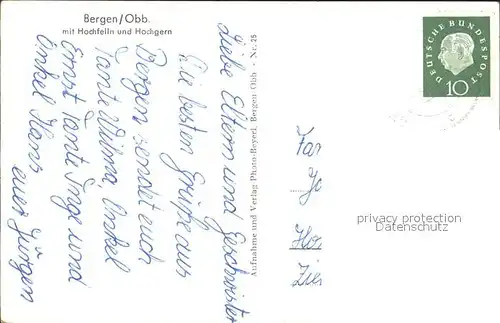 Bergen/Obb.
mit Hochfelln und Hochgern
Liebe Eltern und Geschwister
Die besten Grüße aus
Bergen sendet euch
Tante Wilma, Onkel
Ernst Tante Inge und
Onkel Hans
euer Jürgen
Aufnahme und Verlag Photo-Beyerl, Bergen Obb. - Nr. 25
DEUTSCHE BUNDESPOST
10
Fam
privacy protection
Datenschutz